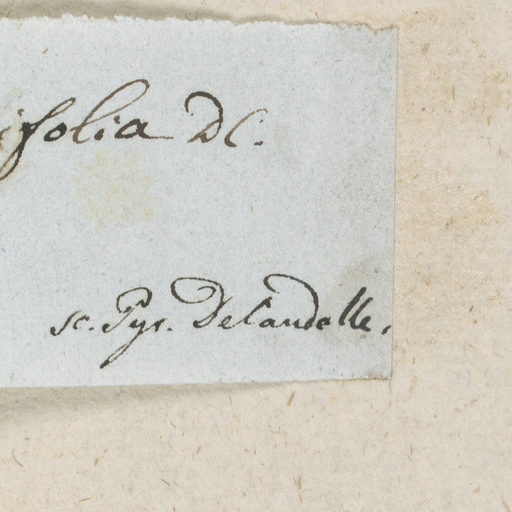 ifolia DC.
sc. Pyr. DeCandolle.